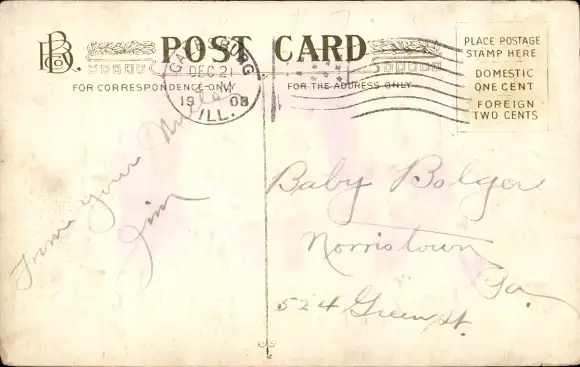 BR Co.
POST CARD
FOR CORRESPONDENCE ONLY
FOR THE ADDRESS ONLY
PLACE POSTAGE
STAMP HERE
DOMESTIC
ONE CENT
FOREIGN
TWO CENTS
GALESBURG
DEC 21
1908
ILL.
From your Uncle
Jim
Baby Bolger
Norristown
Pa.
524 Green St.